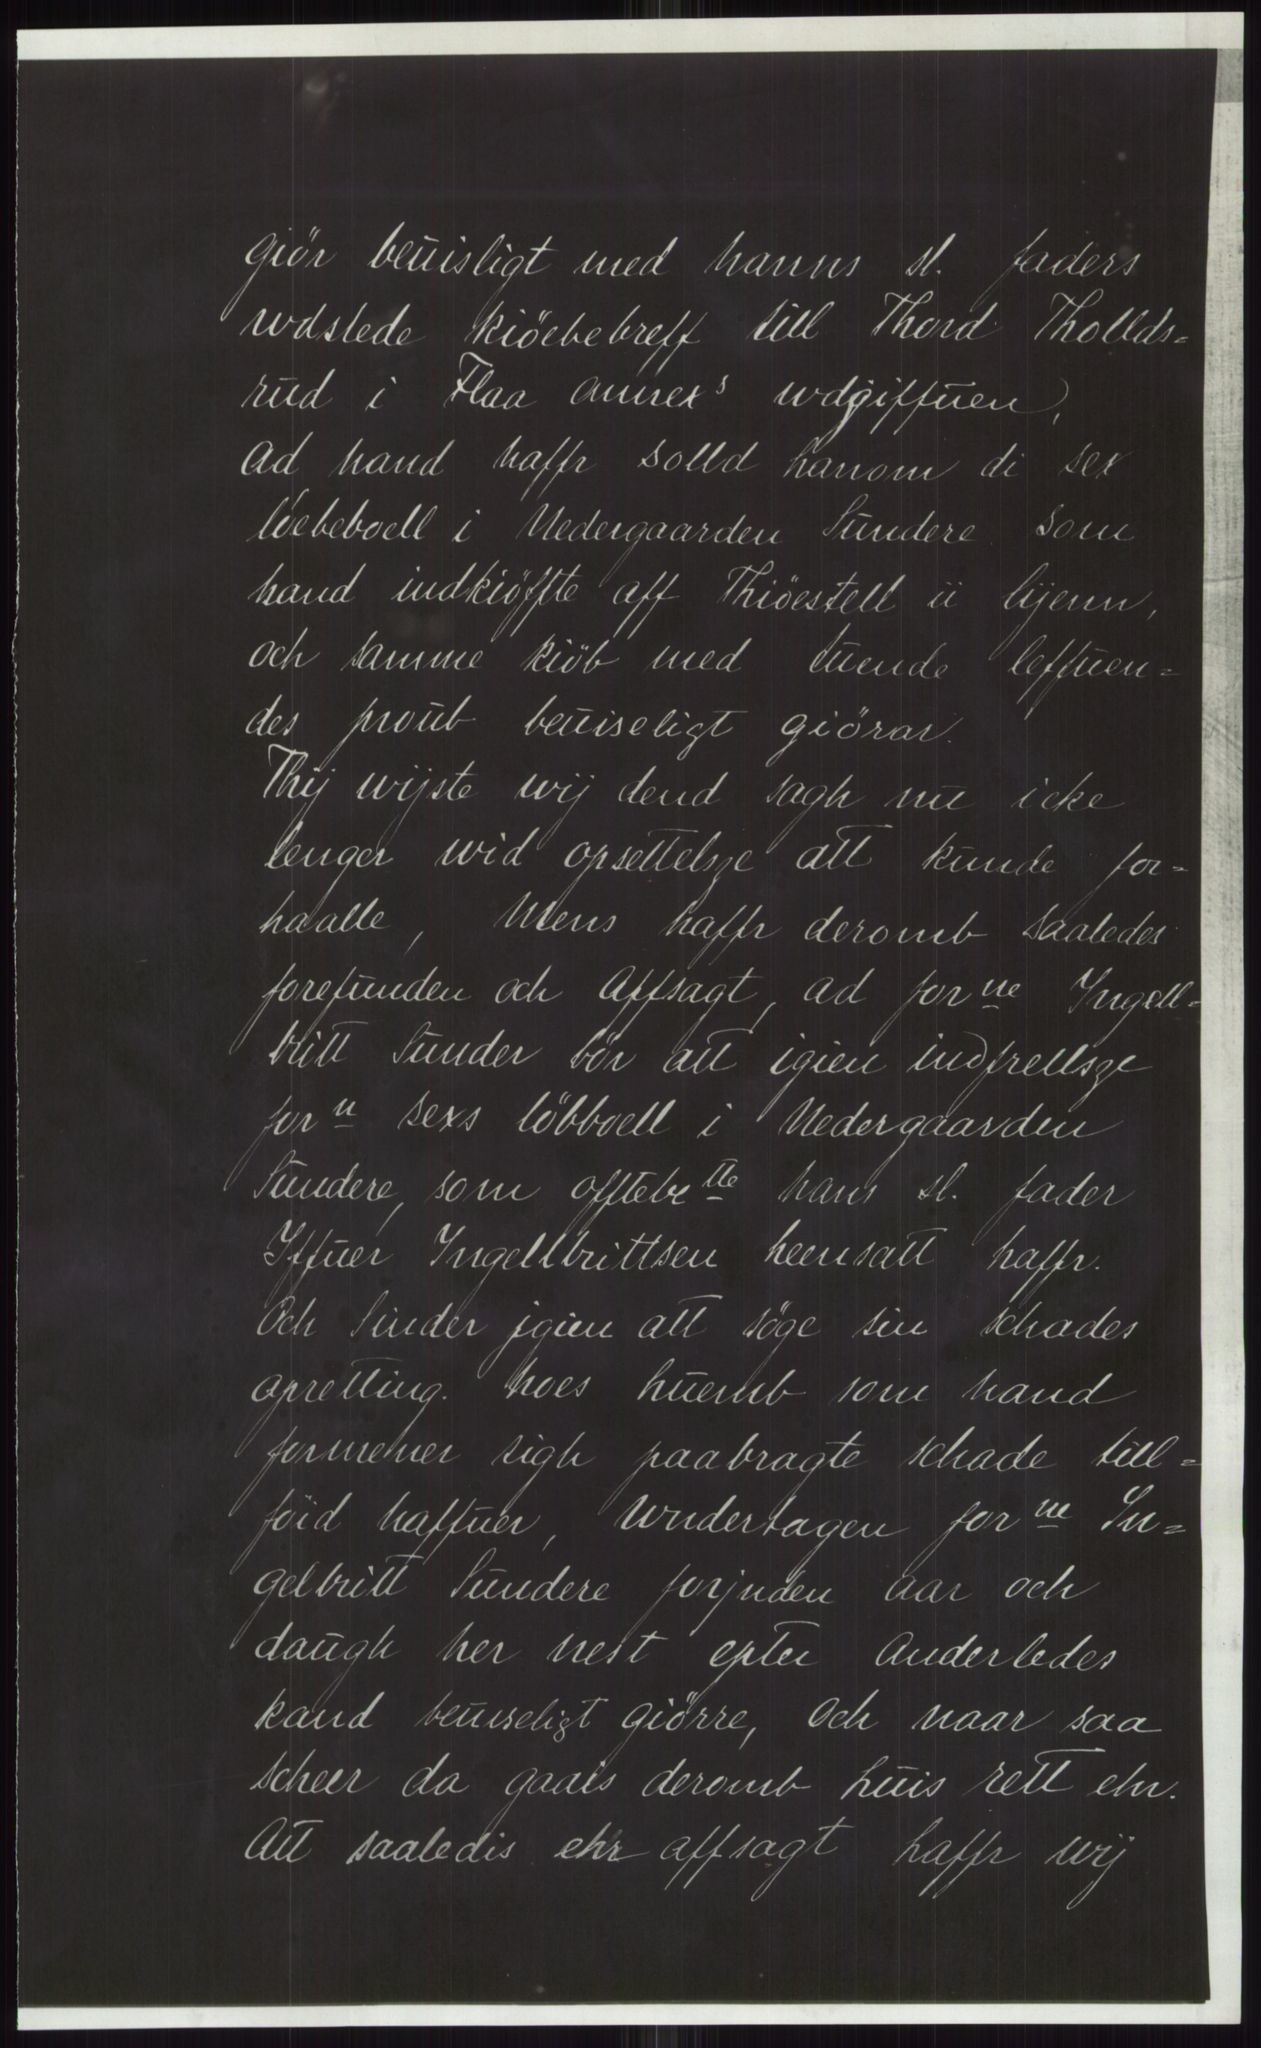 giör beuisligt med hanns sl. faders
wdstede kiöebebreff till Thord Tholds=
rud i Flaa annexs wdgiffuen,
Ad hand haffr solld hanom di sex
löebeboell i Nedergaarden Sundere som
hand indkiöffte aff Thiöestell ii lijenn,
och samme kiöb med tuende leffuen=
des proub beuiseligt giörar.
Thij wijste wij dend sagh nu icke
lenger wid opsettelsze att kunde for=
haalle, Mens haffr deromb saaledes
forefunden och Affsagt, ad forne Yngell=
britt Sunder bör att igien indfrellsze
forn sexs löbboell i Nedergaarden
Sundere, som offtebete hans sl. fader
Yffuer Yngellbrittsen heensatt haffr.
Och Sinder jgien att söge sin schades
opretting. hoes huemb som hand
formener sigh paabragte schade till=
föid haffuer, Wndertagen forne In=
gelbritt Sundere forjnden aar och
daugh her nest epter Anderledes
kand beuiseligt giörre, Och naar saa
scheer da gaais deromb huis rett ehr.
Att saaledis ehr affsagt haffr wij